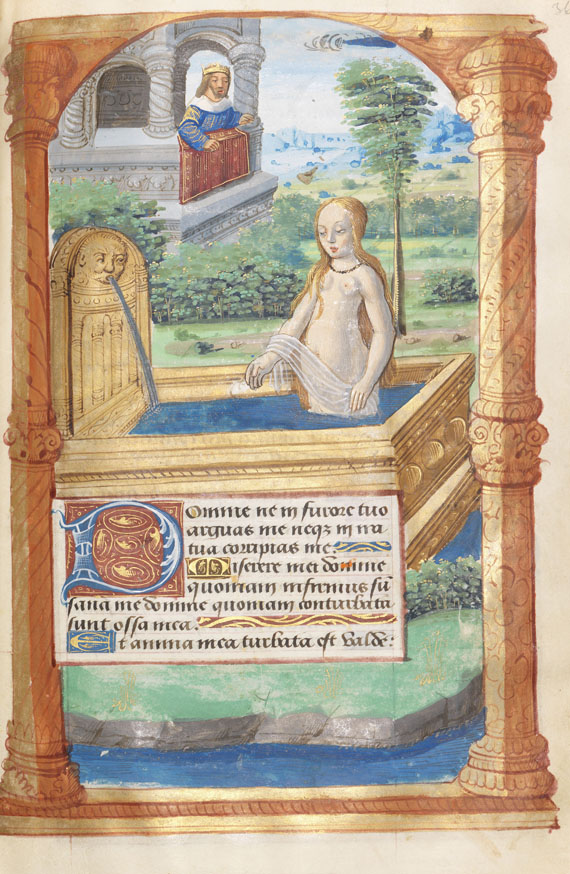 Domine ne in furore tuo
arguas me neqz in ira
tua corripias me.
Miserere mei domine
quoniam infirmus sū
sana me domine quoniam conturbata
sunt ossa mea.
Et anima mea turbata est valde: